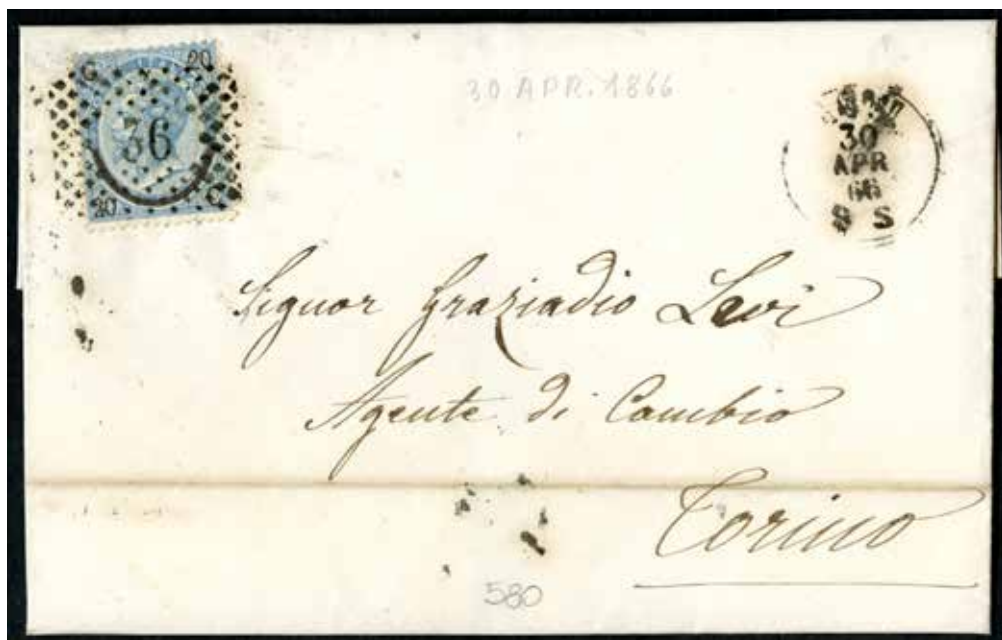 C 20
36
20 C
30 APR. 1866
30
APR
66
8 S
Signor Graziadio Levi
Agente di Cambio
Torino
580